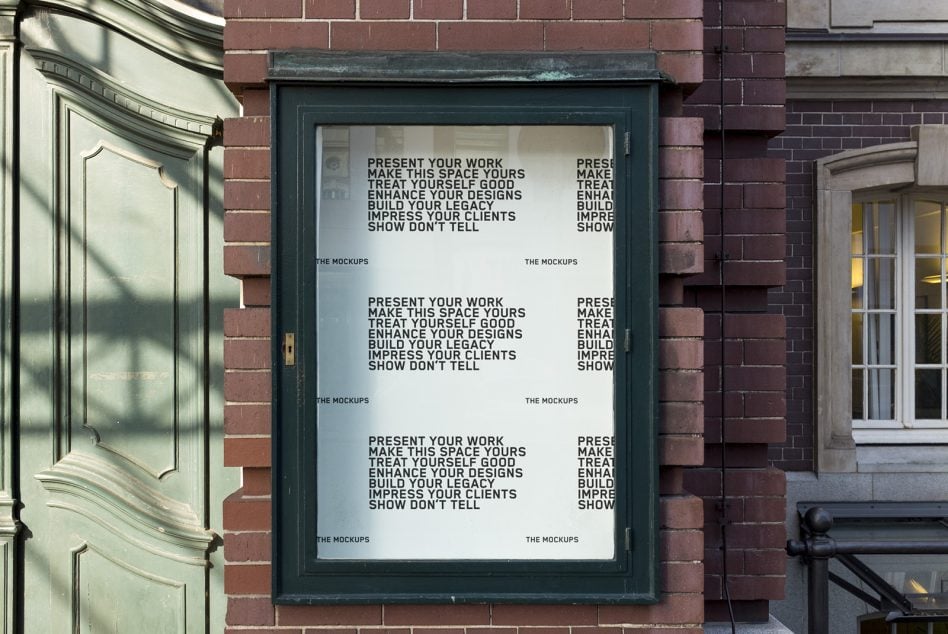 PRESENT YOUR WORK
MAKE THIS SPACE YOURS
TREAT YOURSELF GOOD
ENHANCE YOUR DESIGNS
BUILD YOUR LEGACY
IMPRESS YOUR CLIENTS
SHOW DON'T TELL
PRESE
MAKE
TREAT
ENHAN
BUILD
IMPRE
SHOW
THE MOCKUPS
THE MOCKUPS
PRESENT YOUR WORK
MAKE THIS SPACE YOURS
TREAT YOURSELF GOOD
ENHANCE YOUR DESIGNS
BUILD YOUR LEGACY
IMPRESS YOUR CLIENTS
SHOW DON'T TELL
PRESE
MAKE
TREAT
ENHAN
BUILD
IMPRE
SHOW
THE MOCKUPS
THE MOCKUPS
PRESENT YOUR WORK
MAKE THIS SPACE YOURS
TREAT YOURSELF GOOD
ENHANCE YOUR DESIGNS
BUILD YOUR LEGACY
IMPRESS YOUR CLIENTS
SHOW DON'T TELL
PRESE
MAKE
TREAT
ENHAN
BUILD
IMPRE
SHOW
THE MOCKUPS
THE MOCKUPS